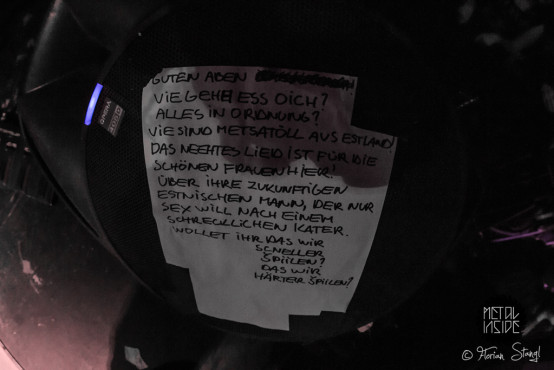 GUTEN ABEN
VIE GEHE ESS DICH?
ALLES IN ORDNUNG?
VIE SIND METSATÖLL AUS ESTLAND
DAS NECHTES LIED IST FÜR DIE
SCHÖNEN FRAUEN HIER!
ÜBER IHRE ZUKUNFTIGEN
ESTNISCHEN MANN, DER NUR
SEX WILL NACH EINEM
SCHRECKLICHEN KATER.
WOLLET IHR DAS WIR
SCNELLER
SPIILEN?
DAS WIR
HÄRTER SPIILEN?
METAL
INSIDE
© Florian Stangl